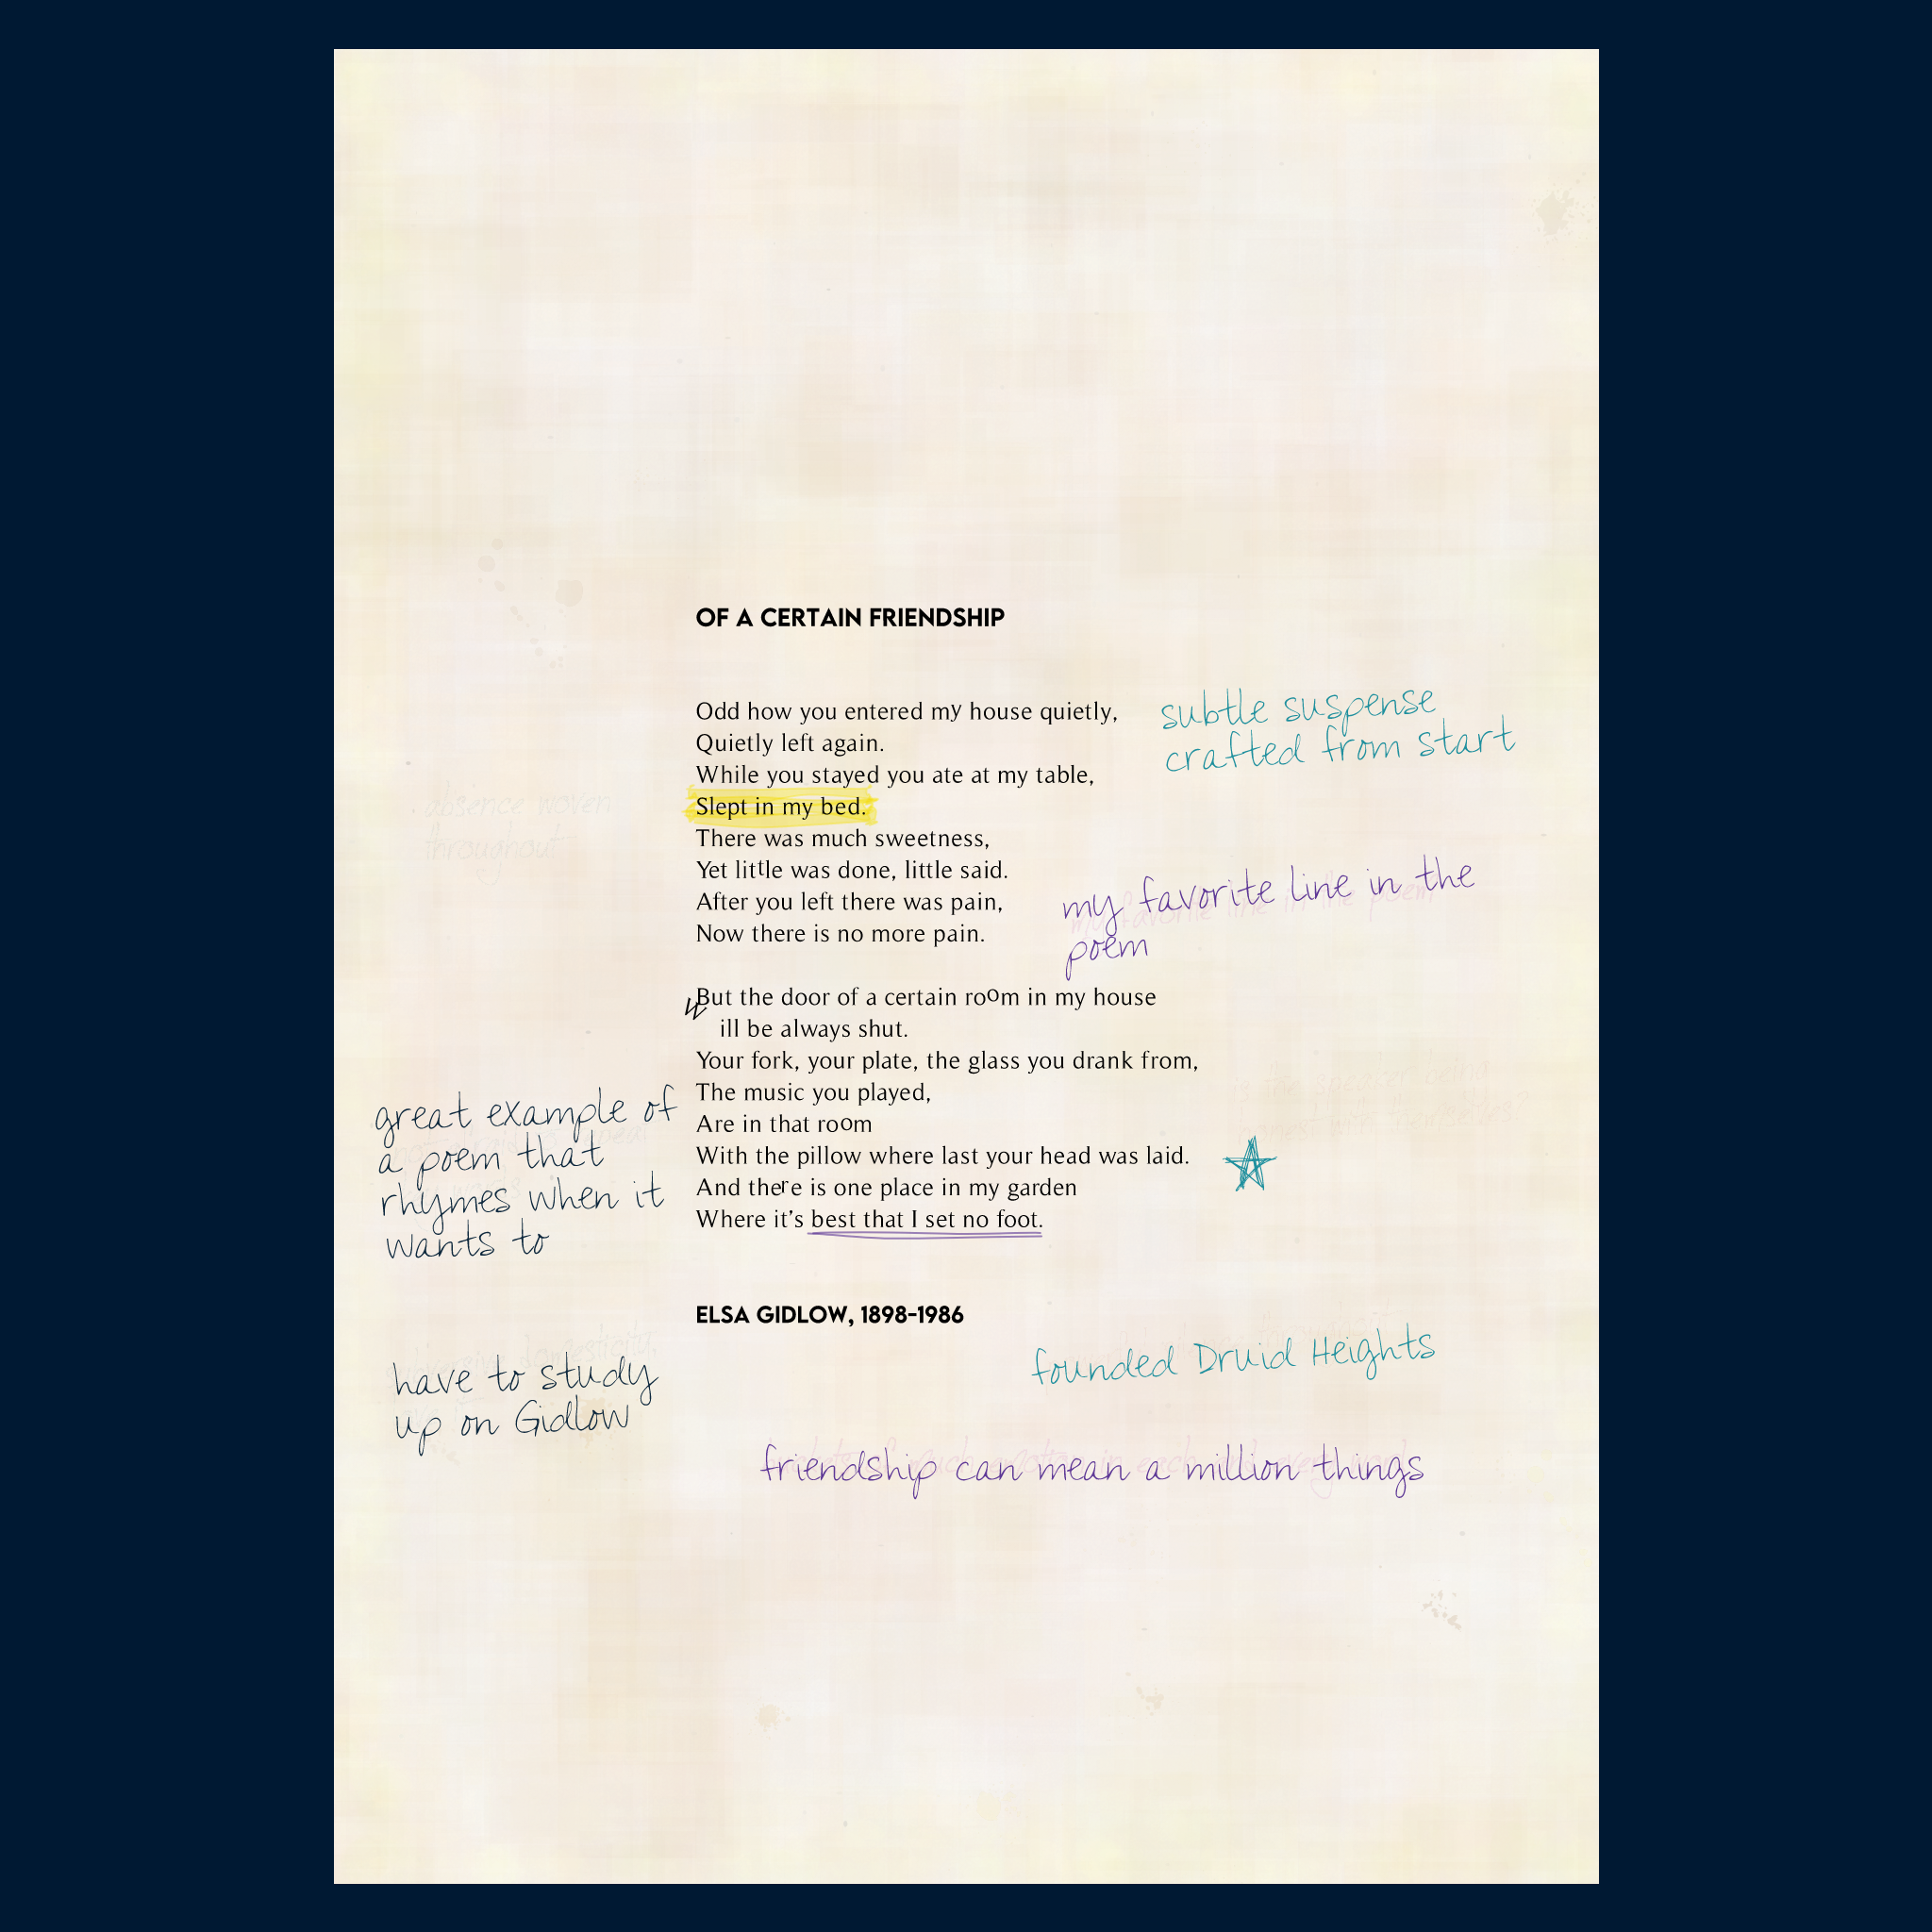 OF A CERTAIN FRIENDSHIP
Odd how you entered my house quietly,
Quietly left again.
While you stayed you ate at my table,
Slept in my bed.
There was much sweetness,
Yet little was done, little said.
After you left there was pain,
Now there is no more pain.
subtle suspense
crafted from start
absence woven
throughout
my favorite line in the
poem
my favorite line in the poem
But the door of a certain room in my house
Will be always shut.
Your fork, your plate, the glass you drank from,
The music you played,
Are in that room
With the pillow where last your head was laid.
And there is one place in my garden
Where it’s best that I set no foot.
is the speaker being
honest with themselves?
great example of
a poem that
rhymes when it
wants to
ELSA GIDLOW, 1898-1986
founded Druid Heights
have to study
up on Gidlow
friendship can mean a million things